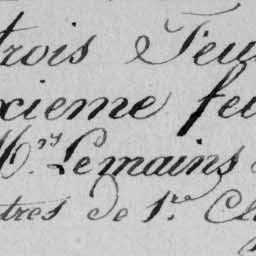 trois Feu
xieme feu
M.rs Lemains
tres de 1.re Cl